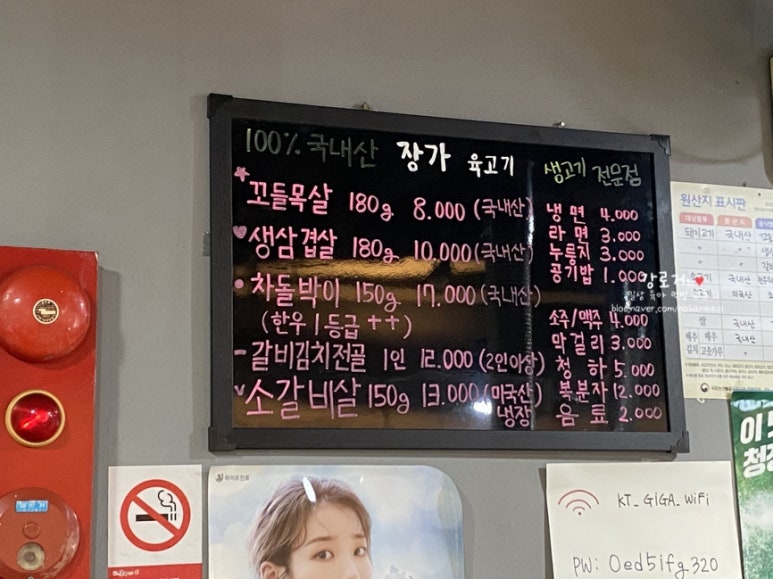 100% 국내산 장가 육고기 생고기 전문점
꼬들목살 180g 8.000 (국내산)
생삼겹살 180g 10.000 (국내산)
차돌박이 150g 17.000 (국내산)
(한우 1등급 ++)
갈비김치전골 1인 12.000 (2인이상)
소갈비살 150g 13.000 (미국산)
냉장
냉면 4.000
라면 3.000
누룽지 3.000
공기밥 1.000
소주/맥주 4.000
막걸리 3.000
청하 5.000
복분자 12.000
음료 2.000
강로거
원산지 표시판
돼지고기 국내산
국내산
미국산
쌀 국내산
배추 배추 국내산
김치 고춧가루
하이트진로
KT_GIGA_WiFi
PW: 0ed5ifg320
이
청정